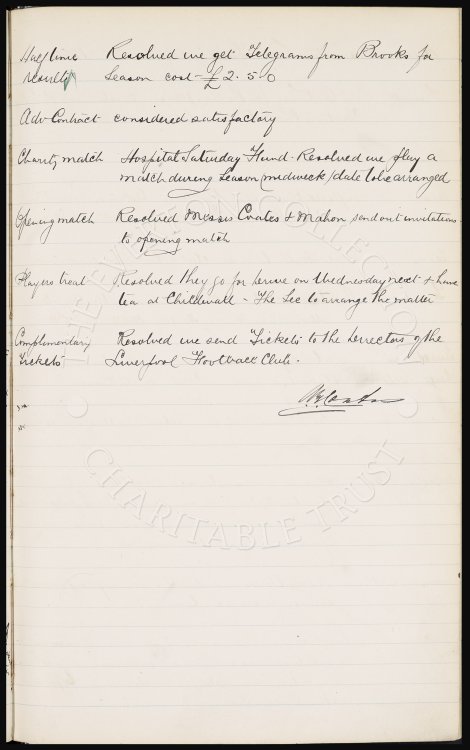 Half time Resolved we get Telegrams from Brooks for
results Season cost £2.5.0
Adv Contract considered satisfactory
Charity match Hospital Saturday Fund. Resolved we play a
match during Season midweek/date to be arranged
Opening match Resolved Messrs Coates & Mahon send out invitations
to opening match
Players treat Resolved they go for drive on Wednesday next & have
tea at Childwall - The Sec to arrange the matter
Complimentary Resolved we send Tickets to the Directors of the
Tickets Liverpool Football Club.
THE EVERTON COLLECTION
CHARITABLE TRUST